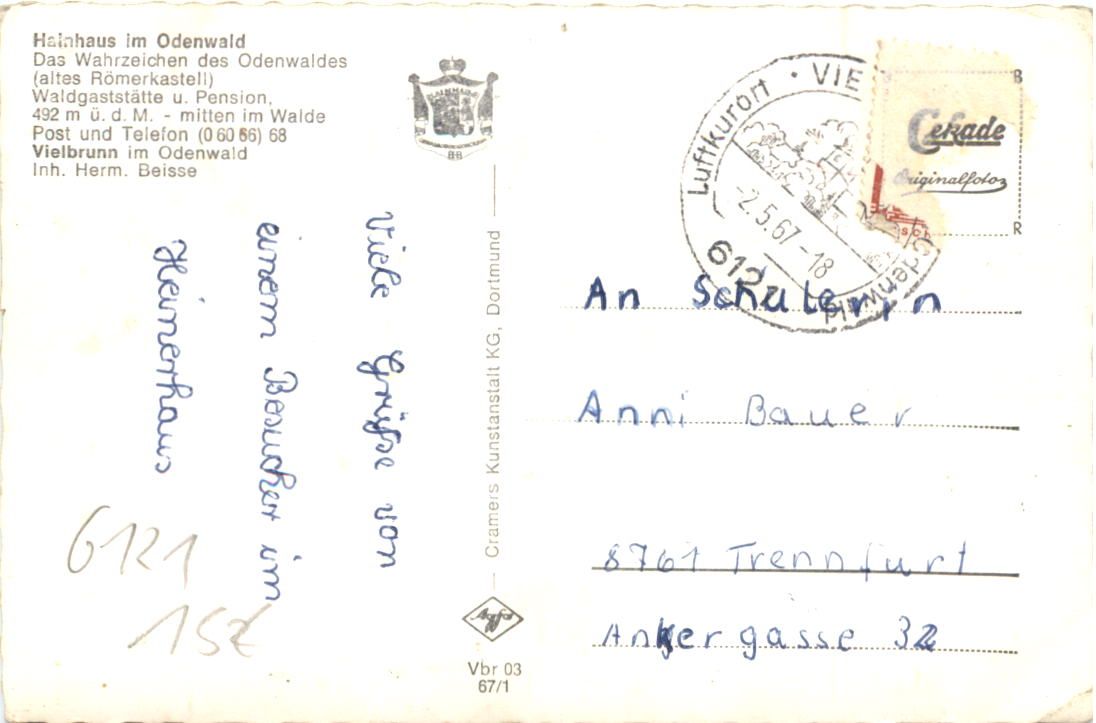 Hainhaus im Odenwald
Das Wahrzeichen des Odenwaldes
(altes Römerkastell)
Waldgaststätte u. Pension,
492 m ü. d. M. - mitten im Walde
Post und Telefon (0 60 66) 68
Vielbrunn im Odenwald
Inh. Herm. Beisse
HAINHAUS
BB
Viele Grüße von
einem Besucher im
Heinerhaus
6121
Cramers Kunstanstalt KG, Dortmund
Agfa
Vbr 03
67/1
Luftkurort · VIE
-2.5.67-18
612
Odenwald
B
Cekade
Originalfoto
R
An Schülerin
Anni Bauer
8761 Trennfurt
Ankergasse 32